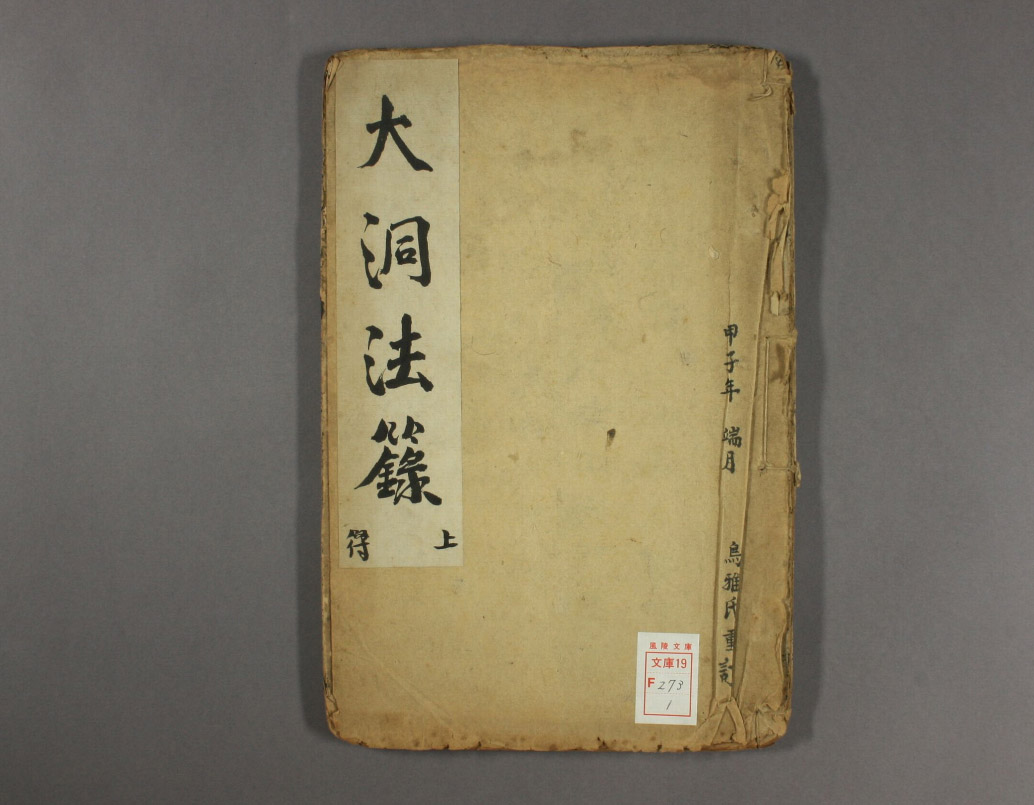 大洞法籙
上
符
甲子年 端月 烏雅氏重訂
風陵文庫
文庫19
F 273
1